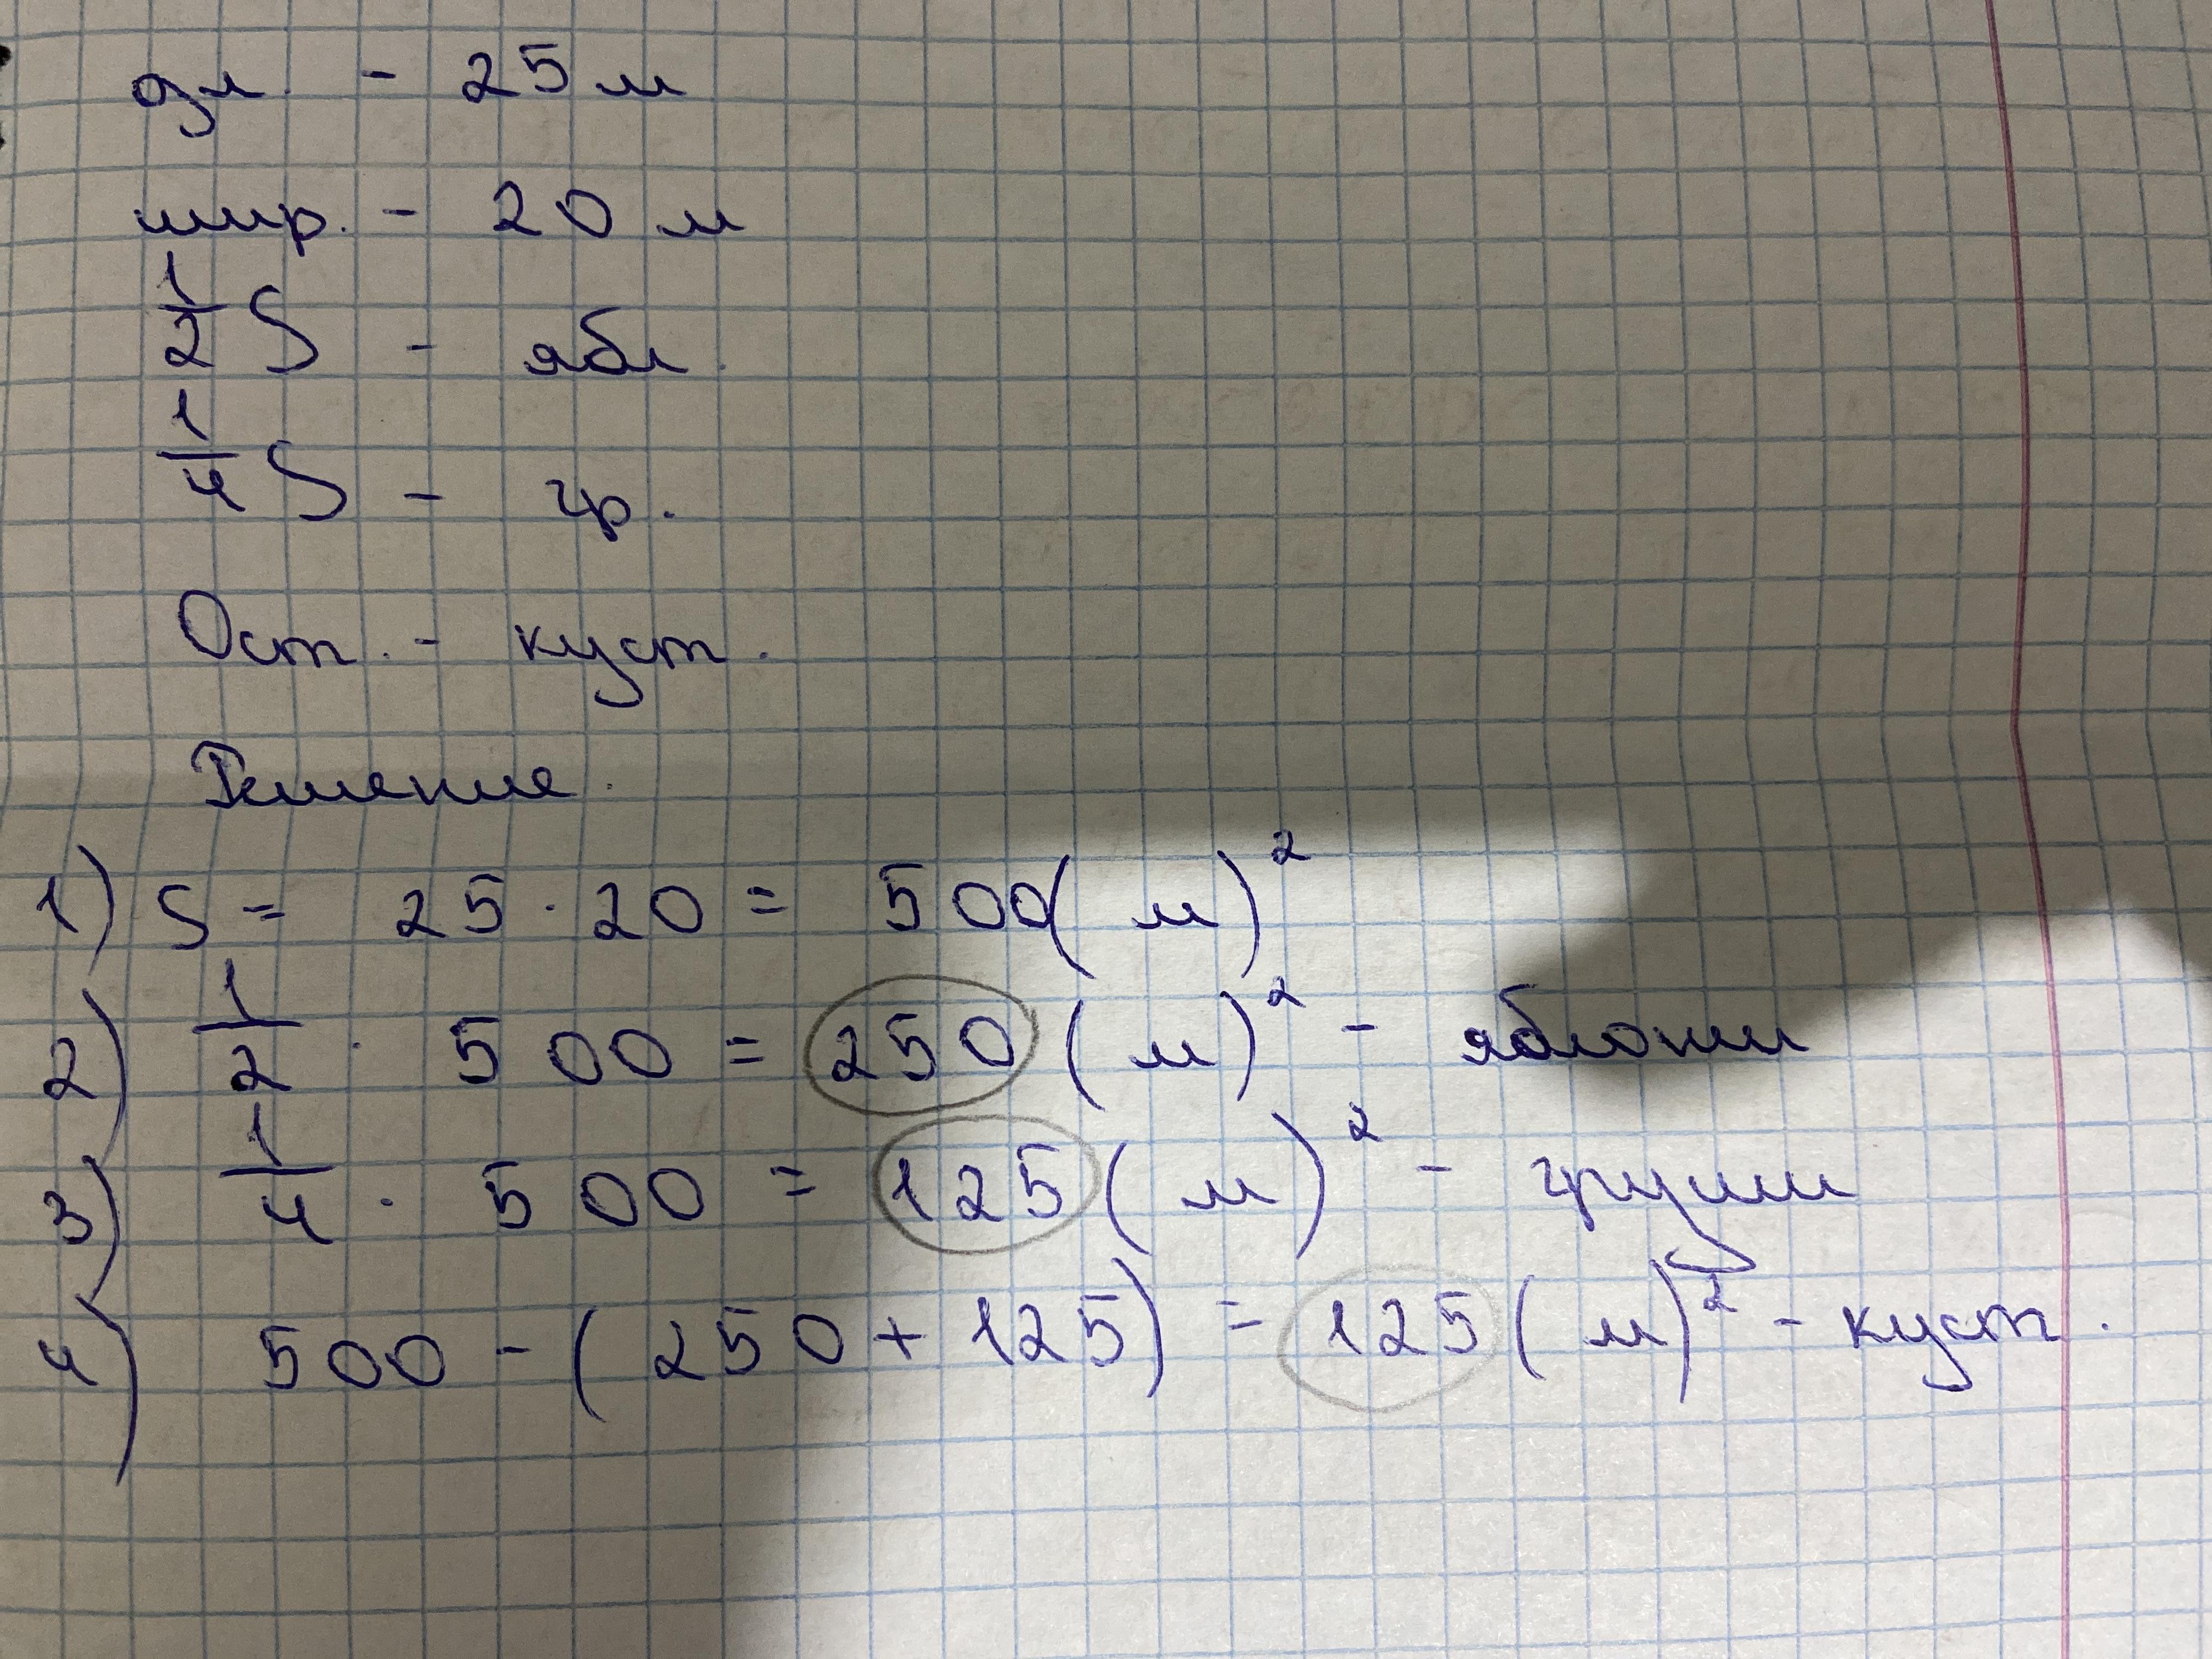 дл. - 25 м
шир. - 20 м
1/2 S - ябл.
1/4 S - гр.
Ост. - куст.
Решение.
1) S = 25 · 20 = 500 (м)²
2) 1/2 · 500 = 250 (м)² - яблони
3) 1/4 · 500 = 125 (м)² - груши
4) 500 - (250 + 125) = 125 (м)² - куст.